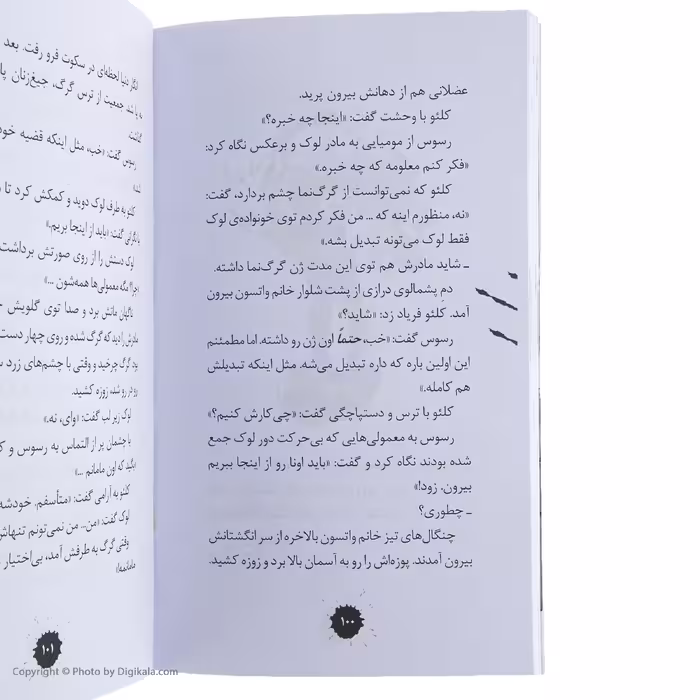 عضلانی هم از دهانش بیرون پرید.
کلئو با وحشت گفت: «اینجا چه خبره؟»
رسوس از مومیایی به مادر لوک و برعکس نگاه کرد:
«فکر کنم معلومه که چه خبره.»
کلئو که نمی‌توانست از گرگ‌نما چشم بردارد، گفت:
«نه، منظورم اینه که ... من فکر کردم توی خونواده‌ی لوک
فقط لوک می‌تونه تبدیل بشه.»
ـ شاید مادرش هم توی این مدت ژن گرگ‌نما داشته.
دمِ پشمالوی درازی از پشت شلوار خانم واتسون بیرون
آمد. کلئو فریاد زد: «شاید؟»
رسوس گفت: «خب، حتماً اون ژن رو داشته. اما مطمئنم
این اولین باره که داره تبدیل می‌شه. مثل اینکه تبدیلش
هم کامله.»
کلئو با ترس و دستپاچگی گفت: «چی‌کارش کنیم؟»
رسوس به معمولی‌هایی که بی‌حرکت دور لوک جمع
شده بودند نگاه کرد و گفت: «باید اونا رو از اینجا ببریم
بیرون. زود!»
ـ چطوری؟
چنگال‌های تیز خانم واتسون بالاخره از سر انگشتانش
بیرون آمدند. پوزه‌اش را رو به آسمان بالا برد و زوزه کشید.
۱۰۰
انگار دنیا لحظه‌ای در سکوت فرو رفت. بعد
به پا شد. جمعیت از ترس گرگ، جیغ‌زنان پا
گذاشتند.
رسوس گفت: «خب، مثل اینکه قضیه خود
شد.»
کلئو به طرف لوک دوید و کمکش کرد تا
با نگرانی گفت: «باید از اینجا بریم.»
لوک دستش را از روی صورتش برداشت
چرا؟ مگه معمولی‌ها همه‌شون ...»
ناگهان ماتش برد و صدا توی گلویش
مادرش را دید که گرگ شده و روی چهار دست
بود. گرگ چرخید و وقتی با چشم‌های زرد
رو در رو شد، زوزه کشید.
لوک زیر لب گفت: «وای، نه.»
با چشمان پر از التماس به رسوس و
«بگید که اون مامانم ...»
کلئو به آرامی گفت: «متأسفم. خودشه
لوک گفت: «من... من نمی‌تونم تنهاش
وقتی گرگ به طرفش آمد، بی‌اختیار
مامانمه!»
۱۰۱
Copyright © Photo by Digikala.com